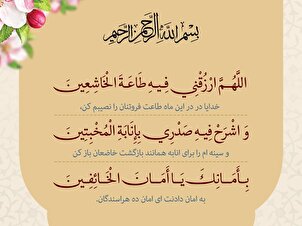 بِسْمِ اللَّهِ الرَّحْمَنِ الرَّحِيمِ
اللَّهُمَّ ارْزُقْنِي فِيهِ طَاعَةَ الْخَاشِعِينَ
خدایا در در این ماه طاعت فروتنان را نصیبم کن،
وَ اشْرَحْ فِيهِ صَدْرِي بِإِنَابَةِ الْمُخْبِتِينَ
و سینه ام را برای انابه همانند بازگشت خاضعان باز کن
بِأَمَانِكَ يَا أَمَانَ الْخَائِفِينَ
به امان دادنت ای امان ده هراسندگان.